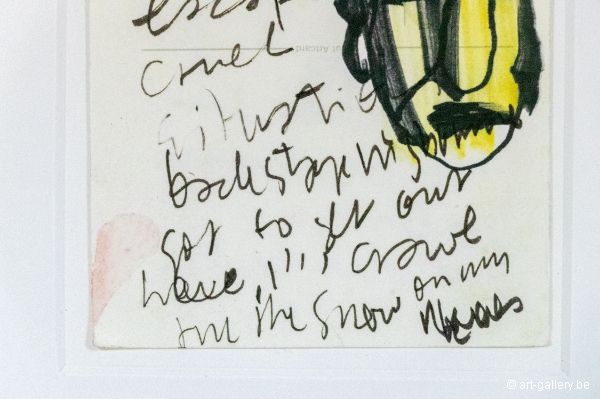 escap
cruel
situatio
backstage
got to get out
here !!! crawl
in the snow on my
knees
© art-gallery.be